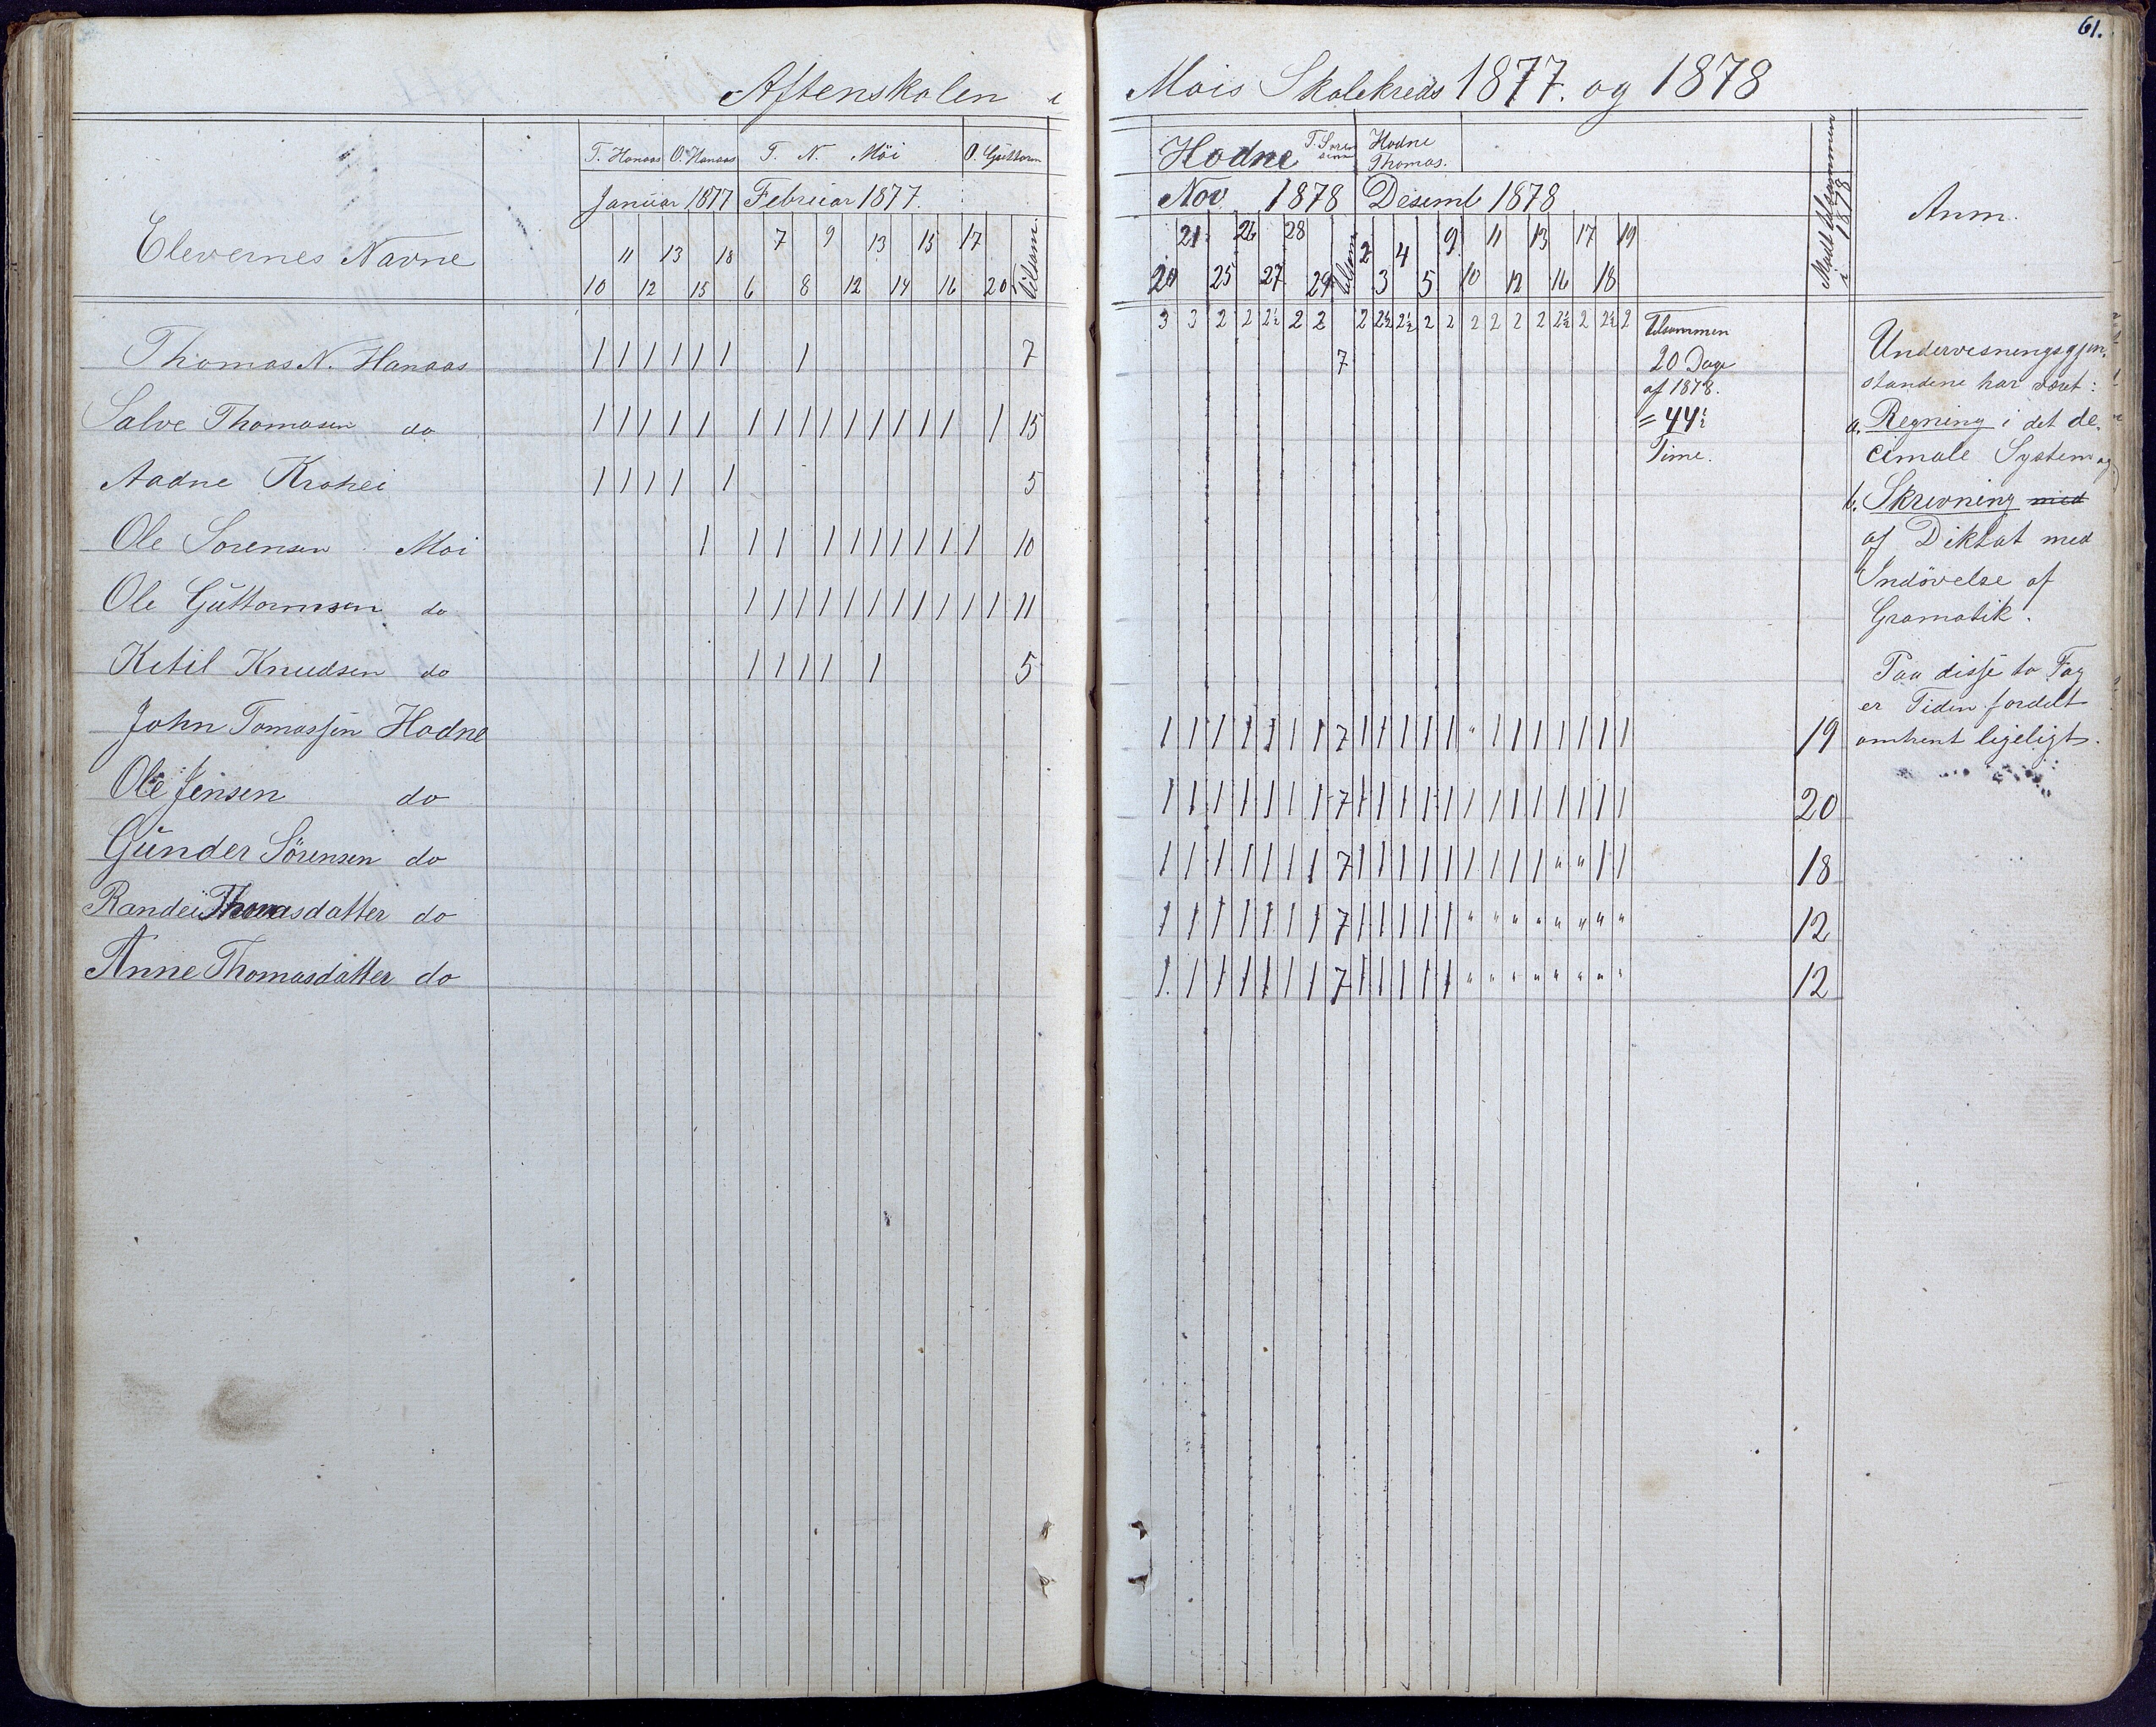 61.
Aftenskolen i Mois Skolekreds 1877. og 1878
Elevernes Navne
T. Hanaas O. Hanaas T. N. Möi O. Guttorm
Januar 1877 Februar 1877.
11 13 18 7 9 13 15 17
10 12 15 6 8 12 14 16 20 tilsam
Thomas N. Hanaas 1 1 1 1 1 1 1 7
Salve Thomasen do 1 1 1 1 1 1 1 1 1 1 1 1 1 1 1 15
Aadne Krohei 1 1 1 1 1 5
Ole Sorensen Moi 1 1 1 1 1 1 1 1 1 1 10
Ole Guttormsen do 1 1 1 1 1 1 1 1 1 1 1 11
Ketil Knudsen do 1 1 1 1 1 5
John Tomassen Hodne
Ole Jensen do
Gunder Sörensen do
Randei Thomasdatter do
Anne Thomasdatter do
Hodne T. Soren Hodne
Thomas.
Nov 1878 Desemb 1878
Mødt tilsammen i 1878
Anm.
21 26 28 2 4 9 11 13 17 19
20 25 27 29 tilsam 3 5 10 12 16 18
3 3 2 2 2½ 2 2 2 2½ 2½ 2 2 2 2 2 2 2½ 2 2½ 2
7
Tilsammen
20 Dage
af 1878.
= 44½
Time.
1 1 1 1 1 1 1 7 1 1 1 1 1 " 1 1 1 1 1 1 1 19
1 1 1 1 1 1 1 7 1 1 1 1 1 1 1 1 1 1 1 1 1 20
1 1 1 1 1 1 1 7 1 1 1 1 1 1 1 1 1 " " 1 1 18
1 1 1 1 1 1 1 7 1 1 1 1 1 " " " " " " " " 12
1 1 1 1 1 1 1 7 1 1 1 1 1 " " " " " " " " 12
Undervisningsgjen-
standene har været:
a. Regning i det de-
cimale System og
b. Skrivning med
af Diktat med
Indövelse af
Gramatik.
Paa disse to Fag
er Tiden fordelt
omtrent ligeligt.